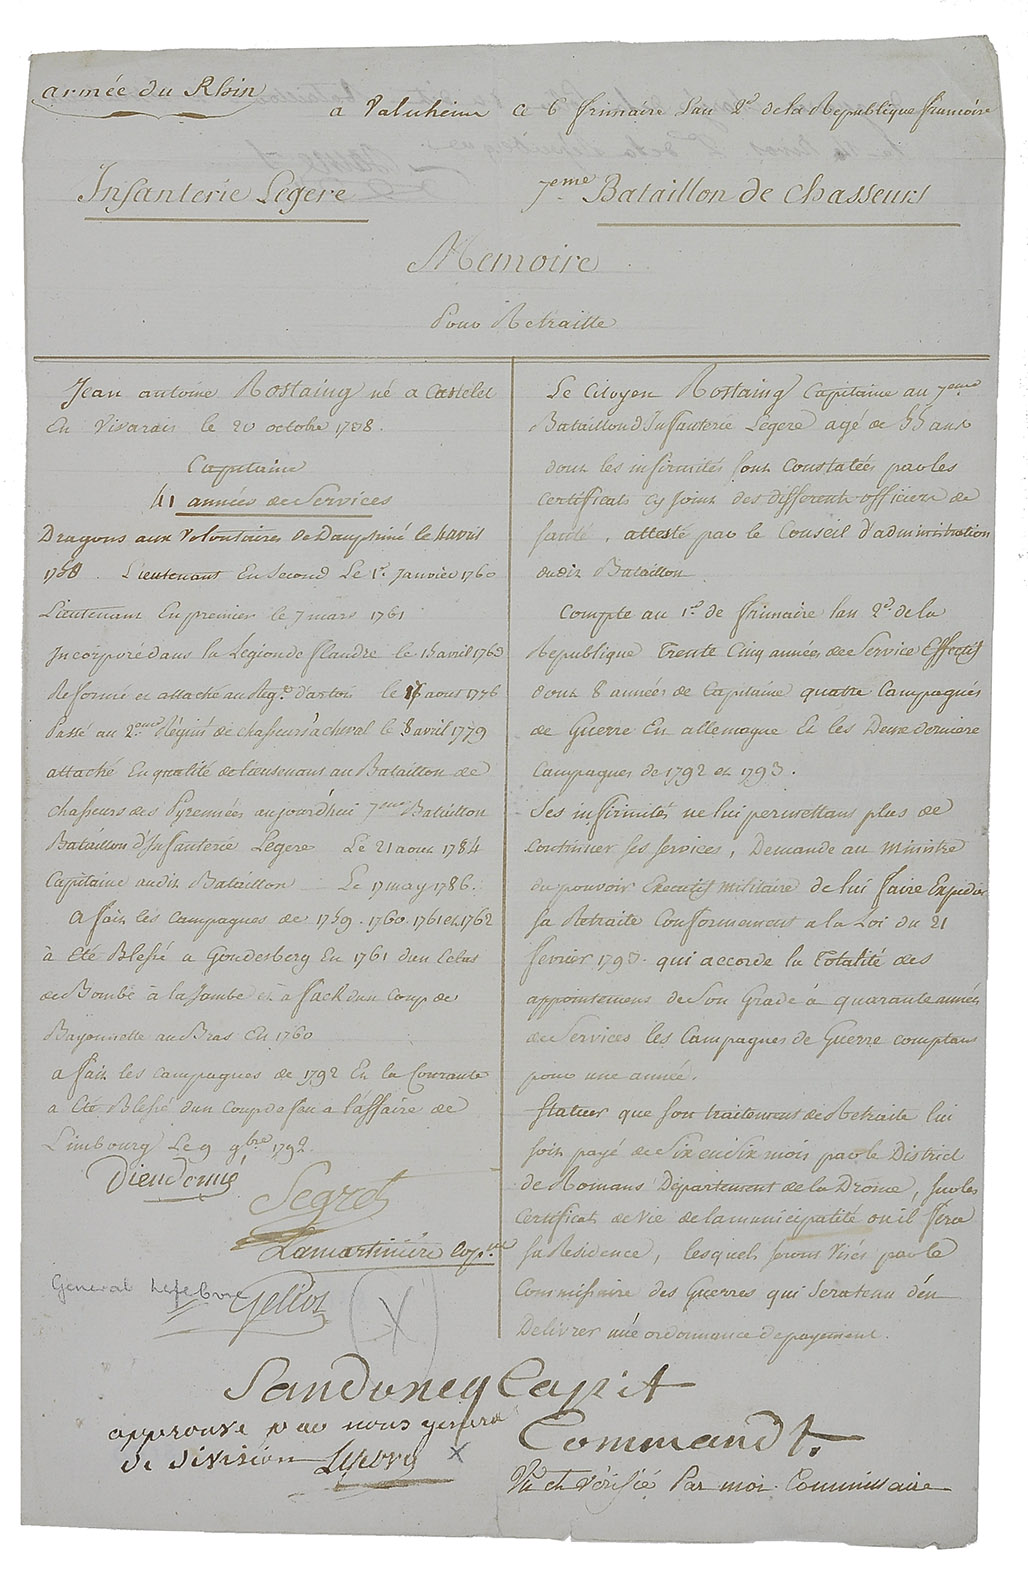 armée du Rhin
a Valuheim Ce 6 frimaire Lan 2e de la Republique francoise
Infanterie Legere
7eme Bataillon de Chasseurs
Memoire
Pour Retraitte
Jean antoine Rostaing né a Castelet
En Vivarais le 20 octobre 1738.
Capitaine
41 années de Services
Dragons aux Volontaires de Dauphiné le 4 avril
1758. Lieutenant En Second Le 1er Janvier 1760
Lieutenant En premier le 7 mars 1761
Incorporé dans la Legion de flandre le 15 avril 1763
Reformé et attaché au Reg.t d'artois le 16 aout 1776
Passé au 2eme Régim.t de chasseurs a cheval le 8 avril 1779
attaché En qualité de lieutenant au Bataillon de
chasseurs des Pyrennées aujourd'hui 7eme Bataillon
Bataillon d'Infanterie Legere Le 21 aout 1784
Capitaine audit Bataillon Le 17 may 1786.
A fait les Campagnes de 1759. 1760. 1761 et 1762
à Eté Blessé a Gondesberg En 1761 dun Eclat
de Bombe à la Jambe et a fack dun Coup de
Bayonnette au Bras En 1760
a fait les campagnes de 1792 Et la Courante
a Eté Blessé dun Coup de feu a laffaire de
Limbourg Le 9 9bre 1792.
Dieudonné
Segret
Lamartiniere Cap.ne
General Lefebvre
Gelliot
Le Citoyen Rostaing Capitaine au 7eme
Bataillon d'Infanterie Legere agé de 55 ans
dont les infirmités sont Constatées par les
Certificats Cy joint des differents officiers de
santé, attesté par le Conseil d'administration
dudit Bataillon
Compte au 1er de frimaire lan 2e de la
Republique Trente Cinq années de Service Effectif
dont 8 années de Capitaine quatre Campagnes
de Guerre En allemagne Et les Deux derniere
Campagnes de 1792 et 1793.
Ses infirmités ne lui permettant plus de
Continuer ses services, Demande au Ministre
du pouvoir Executif militaire de lui faire Expedier
sa Retraite Conformement a la Loi du 21
fevrier 1793. qui accorde la Totalité des
appointemens de Son Grade à quarante années
de Services les Campagnes de Guerre comptant
pour une année.
Statuer que son traitement de Retraite lui
soit payé de Six en Six mois par le District
de Romans Département de la Drôme, sur les
Certificats de Vie de la municipalité ou il fera
sa Residence, lesquels seront Visés par le
Commissaire des Guerres qui sera tenu d'en
Delivrer une ordonnance de payement.
Sanduney Capit
Commandt.
approuve par nous general
de division Lefebvre X
Vu et vérifié Par moi Commissaire